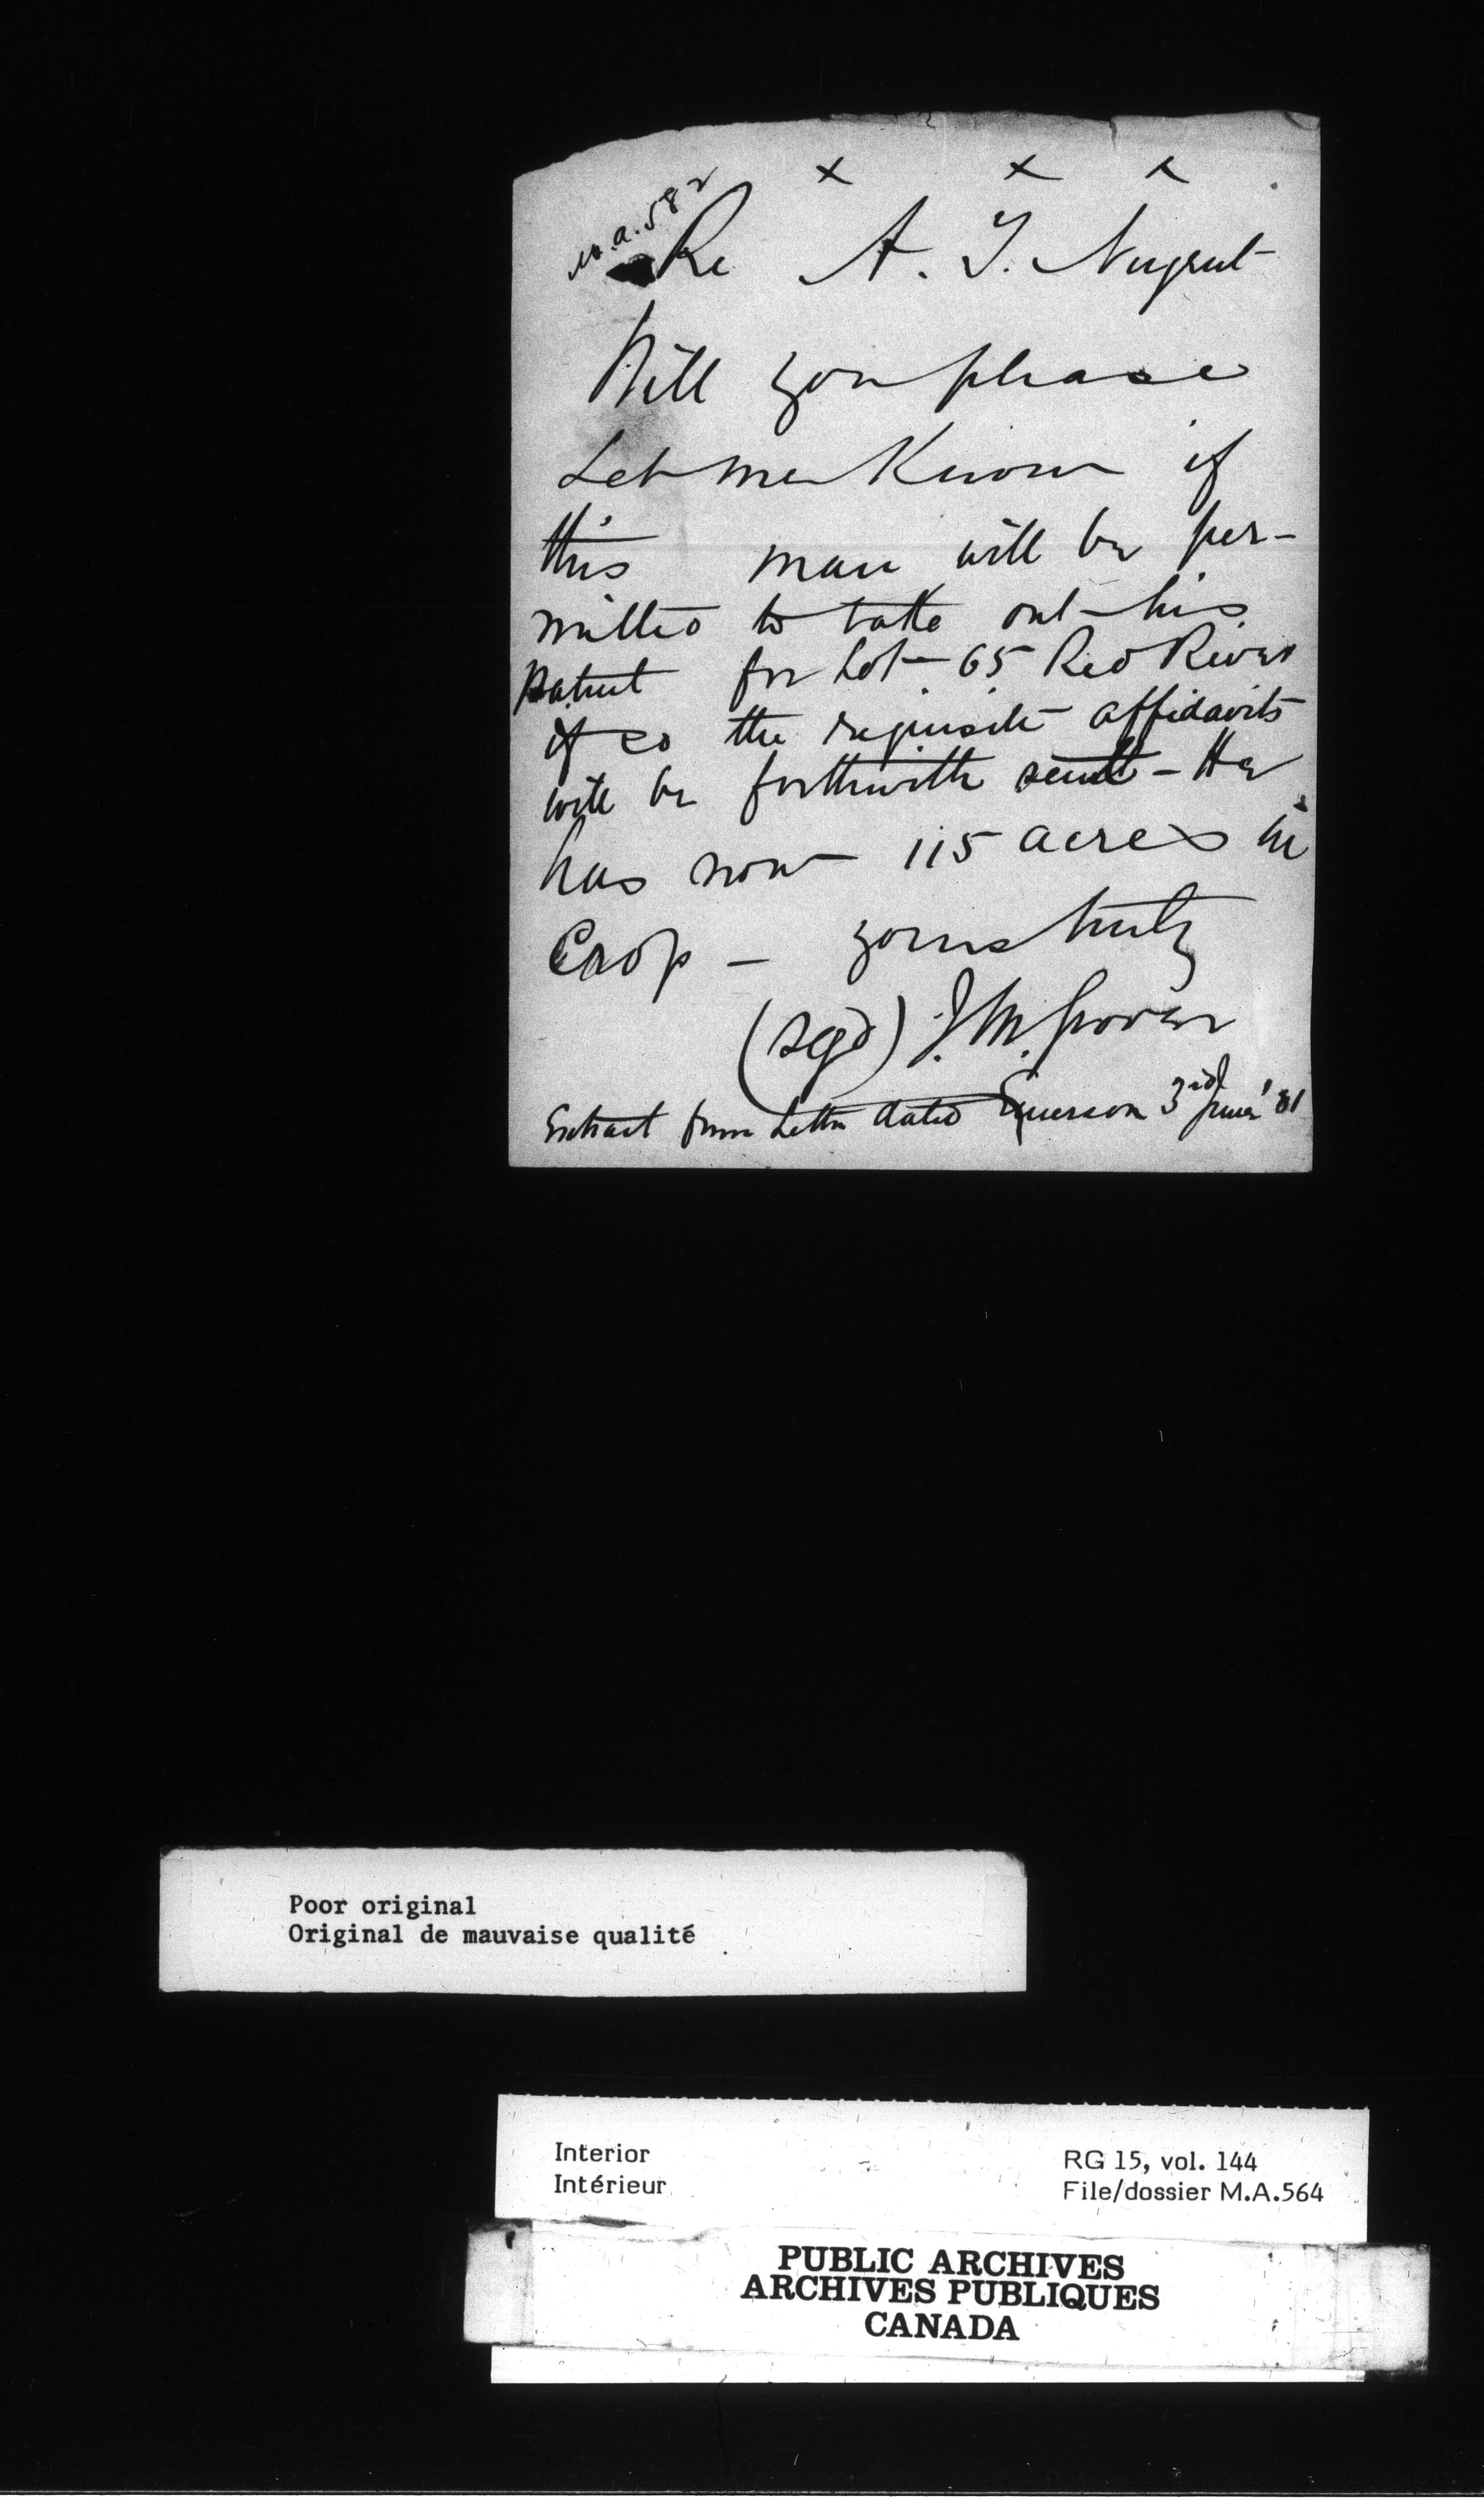 x x x
M.A. 582
Re A. J. Nugent
Will you please
Let me Know if
this man will be per-
mitted to take out his
Patent for Lot 65 Red River
if so the requisite affidavits
will be forthwith sent - He
has now 115 acres in
Crop - yours truly
(sgd) J. M. Grover
Extract from Letter dated Emerson 3rd June '81
Poor original
Original de mauvaise qualité
Interior
Intérieur
RG 15, vol. 144
File/dossier M.A.564
PUBLIC ARCHIVES
ARCHIVES PUBLIQUES
CANADA